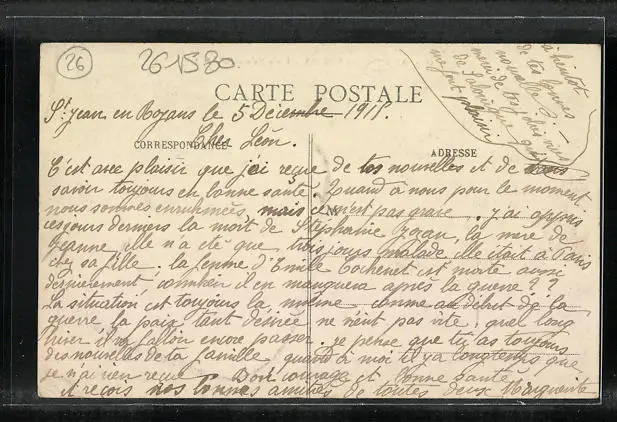 26
261580
CARTE POSTALE
CORRESPONDANCE
ADRESSE
St Jean en Royans le 5 Décembre 191
Cher Léon.
C'est avec plaisir que j'ai reçue de tes nouvelles et de vous
savoir toujours en bonne santé. Quand à nous pour le moment
nous sommes enrhumées, mais ce n'est pas grave. j'ai appris
ces jours derniers la mort de Stéphanie, la mère de
Jeanne, elle n'a été que trois jours malade, elle était à Paris
chez sa fille. la femme d'Emile Cochenet est morte aussi
dernièrement, combien il en manquera après la guerre??
La situation est toujours la même comme au début de la
guerre la paix tant désirée ne vient pas vite, quel long
hiver il va falloir encore passer. je pense que tu as toujours
des nouvelles de la famille quand à moi il y a longtemps que
je n'ai rien reçue. Bon courage et bonne santé
et reçois nos bonnes amitiés de toutes deux Marguerite
à bientôt
de tes bonnes
nouvelles
merci de tes
de Salonique
me font plaisir